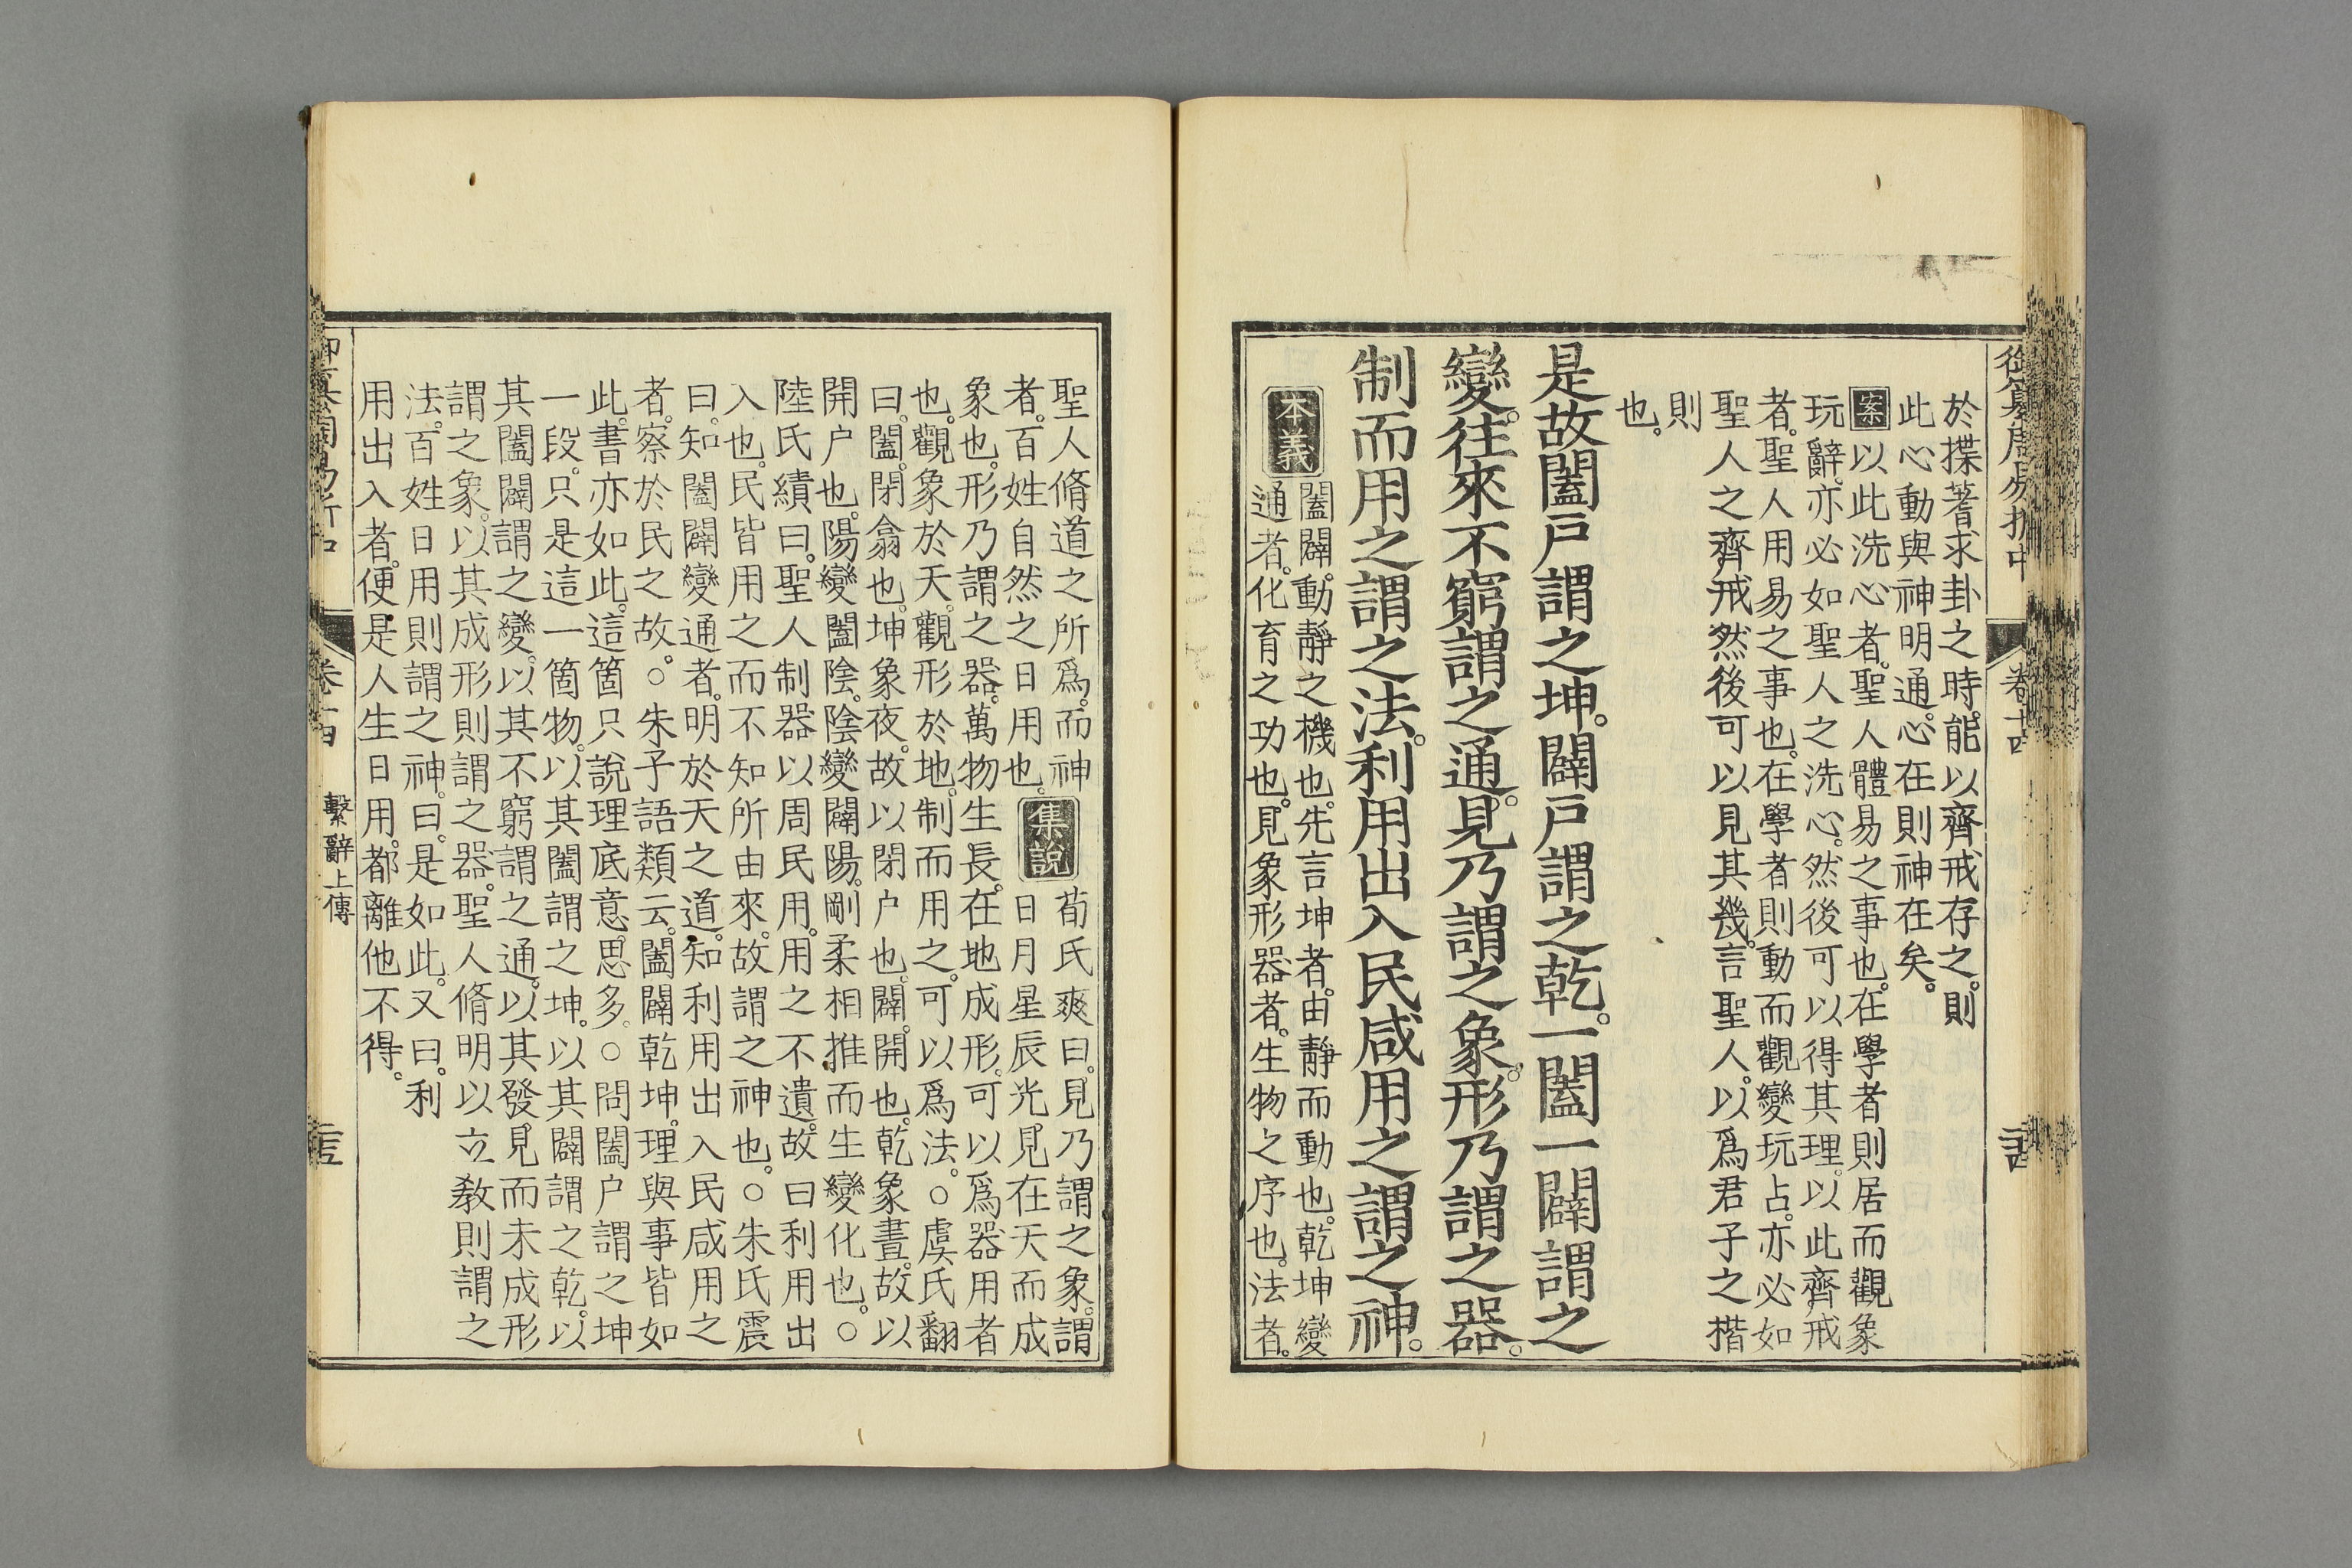 御纂周易折中 卷十四
於揲蓍求卦之時。能以齊戒存之。則
此心動與神明通。心在則神在矣。
案以此洗心者。聖人體易之事也。在學者則居而觀象
玩辭。亦必如聖人之洗心。然後可以得其理。以此齊戒
者。聖人用易之事也。在學者則動而觀變玩占。亦必如
聖人之齊戒然後可以見其幾。言聖人。以爲君子之楷
則
也。
是故闔戶謂之坤。闢戶謂之乾。一闔一闢謂之
變。往來不窮謂之通。見乃謂之象。形乃謂之器。
制而用之謂之法。利用出入民咸用之謂之神。
本義
闔闢。動靜之機也。先言坤者。由靜而動也。乾坤變
通者。化育之功也。見象形器者。生物之序也。法者。
聖人脩道之所爲。而神
者。百姓自然之日用也。
集說
荀氏爽曰。見乃謂之象。謂
日月星辰光見在天而成
象也。形乃謂之器。萬物生長。在地成形。可以爲器用者
也。觀象於天。觀形於地。制而用之。可以爲法。○虞氏翻
曰。闔。閉翕也。坤象夜。故以閉户也。闢。開也。乾象晝。故以
開户也。陽變闔陰。陰變闢陽。剛柔相推而生變化也。○
陸氏績曰。聖人制器以周民用。用之不遺。故曰利用出
入也。民皆用之而不知所由來。故謂之神也。○朱氏震
曰。知闔闢變通者。明於天之道。知利用出入民咸用之
者。察於民之故。○朱子語類云。闔闢乾坤。理與事皆如
此。書亦如此。這箇只說理底意思多。○問闔户謂之坤
一段。只是這一箇物。以其闔謂之坤。以其闢謂之乾。以
其闔闢謂之變。以其不窮謂之通。以其發見而未成形
謂之象。以其成形則謂之器。聖人脩明以立教則謂之
法。百姓日用則謂之神。曰。是如此。又曰。利
用出入者。便是人生日用。都離他不得。
卷十四 繫辭上傳